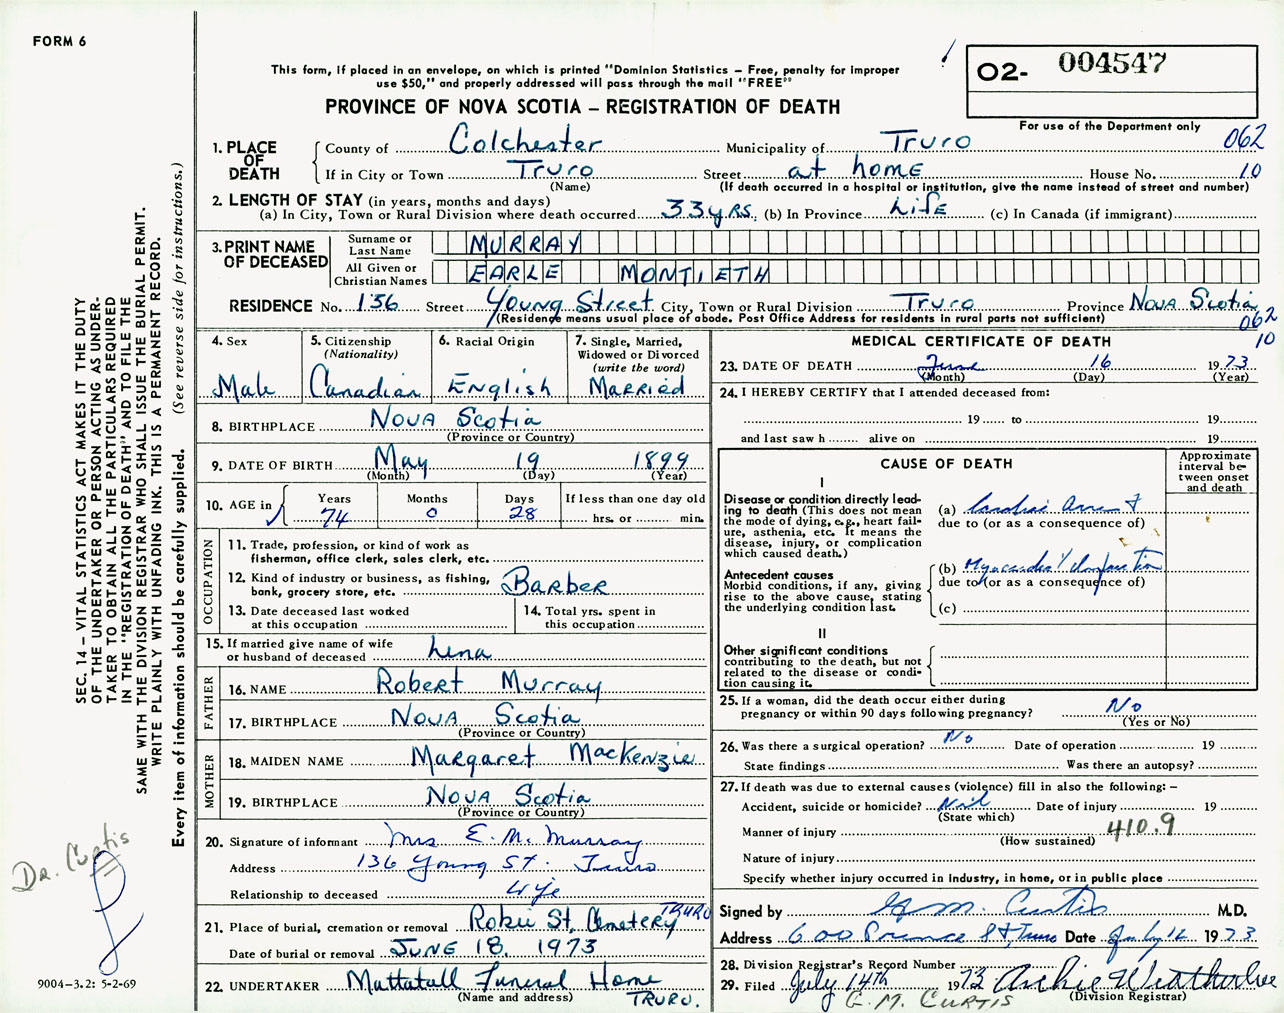 FORM 6
This form, if placed in an envelope, on which is printed "Dominion Statistics – Free, penalty for improper
use $50," and properly addressed will pass through the mail "FREE"
O2- 004547
PROVINCE OF NOVA SCOTIA – REGISTRATION OF DEATH
For use of the Department only
062
10
1. PLACE OF DEATH County of Colchester Municipality of Truro
If in City or Town Truro Street at home House No.
(Name) (If death occurred in a hospital or institution, give the name instead of street and number)
2. LENGTH OF STAY (in years, months and days)
(a) In City, Town or Rural Division where death occurred 33 yrs. (b) In Province Life (c) In Canada (if immigrant)
3. PRINT NAME OF DECEASED
Surname or Last Name MURRAY
All Given or Christian Names EARLE MONTIETH
RESIDENCE No. 136 Street Young Street City, Town or Rural Division Truro Province Nova Scotia
(Residence means usual place of abode. Post Office Address for residents in rural parts not sufficient)
062
10
4. Sex Male
5. Citizenship (Nationality) Canadian
6. Racial Origin English
7. Single, Married, Widowed or Divorced (write the word) Married
8. BIRTHPLACE Nova Scotia
(Province or Country)
9. DATE OF BIRTH May 19 1899
(Month) (Day) (Year)
10. AGE in Years 74 Months 0 Days 28 If less than one day old hrs. or min.
OCCUPATION
11. Trade, profession, or kind of work as
fisherman, office clerk, sales clerk, etc.
12. Kind of industry or business, as fishing,
bank, grocery store, etc. Barber
13. Date deceased last worked
at this occupation
14. Total yrs. spent in
this occupation
15. If married give name of wife
or husband of deceased Lena
FATHER
16. NAME Robert Murray
17. BIRTHPLACE Nova Scotia
(Province or Country)
MOTHER
18. MAIDEN NAME Margaret MacKenzie
19. BIRTHPLACE Nova Scotia
(Province or Country)
20. Signature of informant Mrs E. M. Murray
Address 136 Young St. Truro
Relationship to deceased Wife
21. Place of burial, cremation or removal Robie St. Cemetery TRURO
Date of burial or removal JUNE 18. 1973
22. UNDERTAKER Mattatall Funeral Home
(Name and address) TRURO.
MEDICAL CERTIFICATE OF DEATH
23. DATE OF DEATH June 16 1973
(Month) (Day) (Year)
24. I HEREBY CERTIFY that I attended deceased from:
19 to 19
and last saw h alive on 19
CAUSE OF DEATH
Approximate interval between onset and death
I
Disease or condition directly lead-
ing to death (This does not mean
the mode of dying, e.g., heart fail-
ure, asthenia, etc. It means the
disease, injury, or complication
which caused death.)
(a) Cardiac Arrest
due to (or as a consequence of)
Antecedent causes
Morbid conditions, if any, giving
rise to the above cause, stating
the underlying condition last.
(b) Myocardial Infarction
due to (or as a consequence of)
(c)
II
Other significant conditions
contributing to the death, but not
related to the disease or condi-
tion causing it.
25. If a woman, did the death occur either during
pregnancy or within 90 days following pregnancy? No
(Yes or No)
26. Was there a surgical operation? No Date of operation 19
State findings Was there an autopsy?
27. If death was due to external causes (violence) fill in also the following: –
Accident, suicide or homicide? Nil Date of injury 19
(State which)
Manner of injury 410.9
(How sustained)
Nature of injury
Specify whether injury occurred in industry, in home, or in public place
Signed by G M. Curtis M.D.
Address 600 Prince St, Truro Date July 12 1973
28. Division Registrar's Record Number
29. Filed July 14th 1973 Archie Weatherbee
G. M. CURTIS (Division Registrar)
SEC. 14 – VITAL STATISTICS ACT MAKES IT THE DUTY
OF THE UNDERTAKER OR PERSON ACTING AS UNDER-
TAKER TO OBTAIN ALL THE PARTICULARS REQUIRED
IN THE "REGISTRATION OF DEATH" AND TO FILE THE
SAME WITH THE DIVISION REGISTRAR WHO SHALL ISSUE THE BURIAL PERMIT.
WRITE PLAINLY WITH UNFADING INK. THIS IS A PERMANENT RECORD.
Every item of information should be carefully supplied. (See reverse side for instructions.)
Dr. Curtis
9004-3.2: 5-2-69